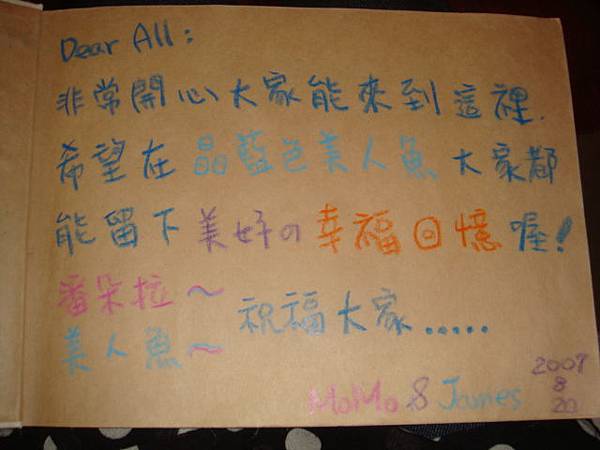 Dear All:
非常開心大家能來到這裡.
希望在晶藍色美人魚大家都
能留下美好の幸福回憶喔!
潘朵拉~
美人魚~
祝福大家.....
MoMo & James
2007
8
20